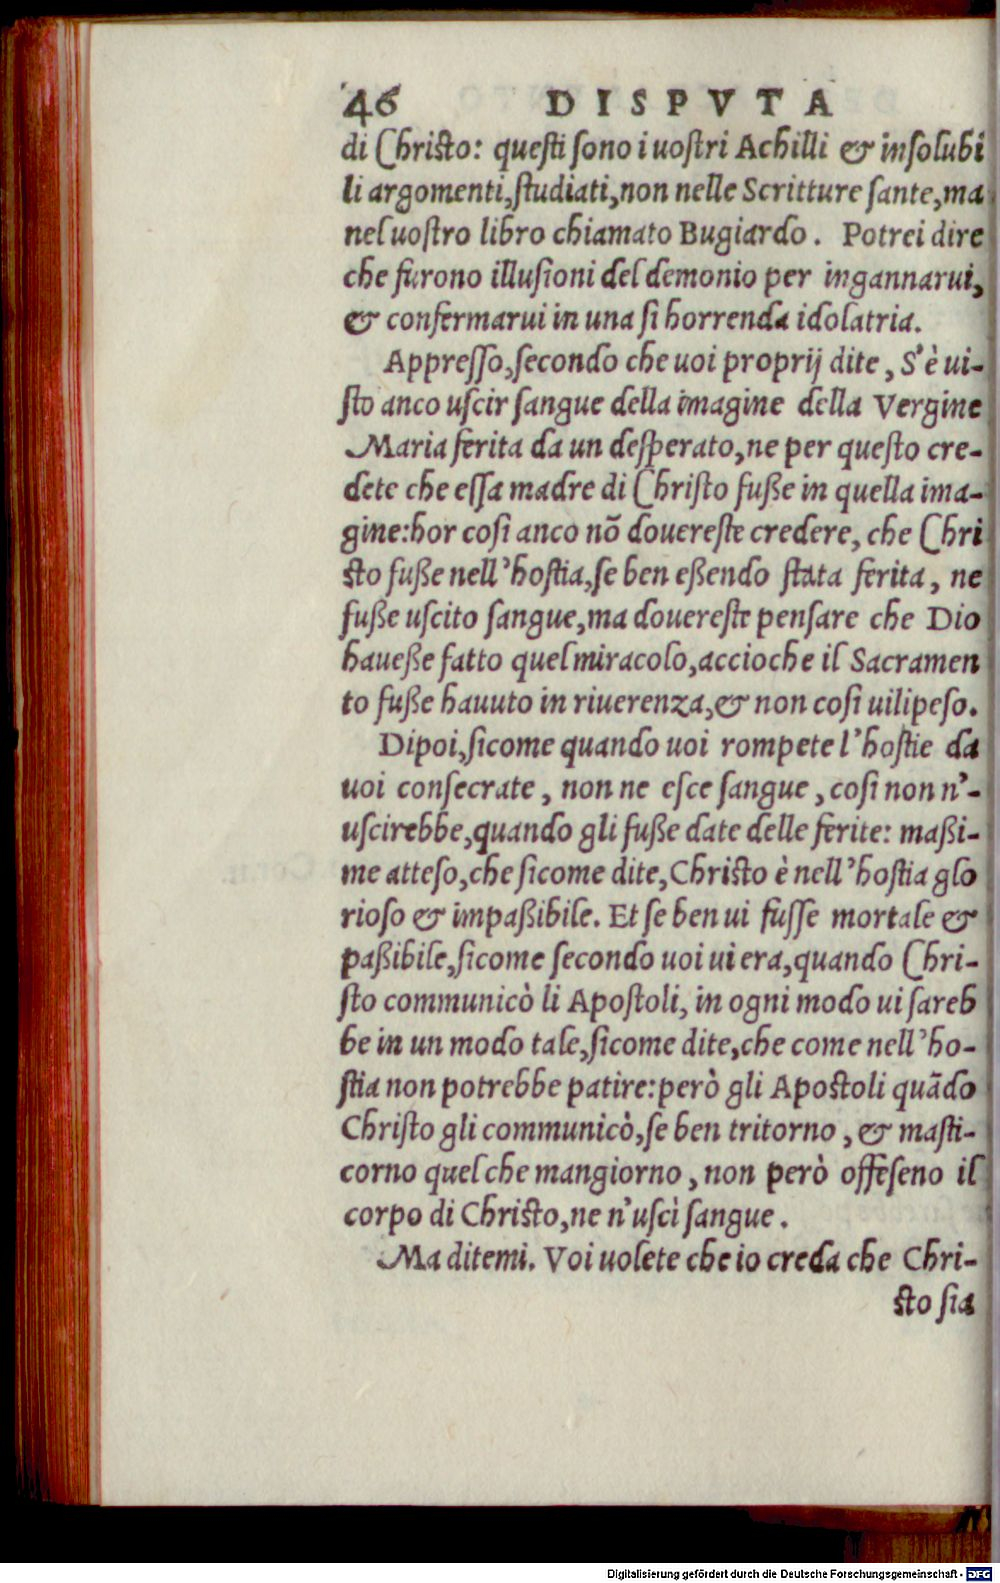 46 DISPVTA
di Christo: questi sono i uostri Achilli & insolubi
li argomenti, studiati, non nelle Scritture sante, ma
nel uostro libro chiamato Bugiardo. Potrei dire
che furono illusioni del demonio per ingannarui,
& confermarui in una si horrenda idolatria.
Appresso, secondo che uoi proprij dite, S'è ui-
sto anco uscir sangue della imagine della Vergine
Maria ferita da un desperato, ne per questo cre-
dete che essa madre di Christo fuße in quella ima-
gine: hor cosi anco nõ douereste credere, che Chri
sto fuße nell'hostia, se ben eßendo stata ferita, ne
fuße uscito sangue, ma douereste pensare che Dio
haueße fatto quel miracolo, accioche il Sacramen
to fuße hauuto in riuerenza, & non cosi uilipeso.
Dipoi, sicome quando uoi rompete l'hostie da
uoi consecrate, non ne esce sangue, cosi non n'-
uscirebbe, quando gli fuße date delle ferite: maßi-
me atteso, che sicome dite, Christo è nell'hostia glo
rioso & impaßibile. Et se ben ui fusse mortale &
paßibile, sicome secondo uoi ui era, quando Chri-
sto communicò li Apostoli, in ogni modo ui sareb
be in un modo tale, sicome dite, che come nell'ho-
stia non potrebbe patire: però gli Apostoli quãdo
Christo gli communicò, se ben tritorno, & masti-
corno quel che mangiorno, non però offeseno il
corpo di Christo, ne n'uscì sangue.
Ma ditemi. Voi uolete che io creda che Chri-
sto sia
Digitalisierung gefördert durch die Deutsche Forschungsgemeinschaft - DFG